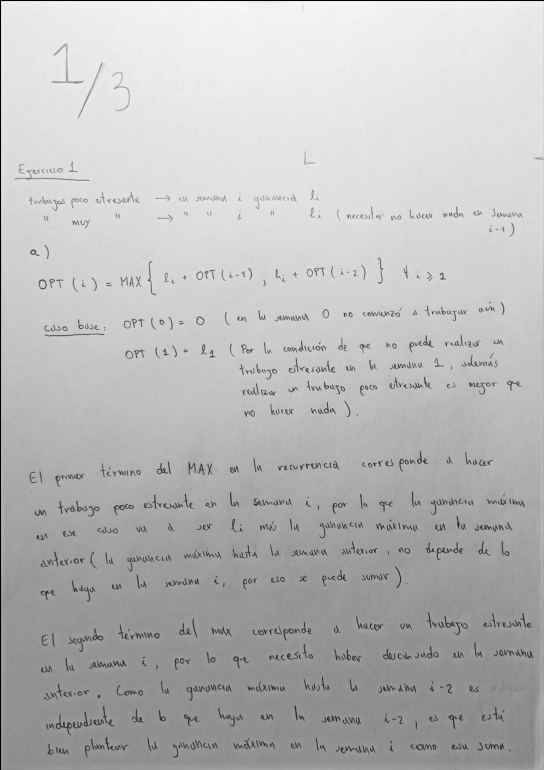 1/3
L
Ejercicio 1
trabajos poco estresante → en semana i ganancia li
" muy " → " " i " hi (necesita no hacer nada en semana
i-1)
a)
OPT (i) = MAX { li + OPT (i-1) , hi + OPT (i-2) } ∀ i ⩾ 2
caso base: OPT (0) = 0 (en la semana 0 no comenzó a trabajar aún)
OPT (1) = l1 (Por la condición de que no puede realizar un
trabajo estresante en la semana 1, además
realizar un trabajo poco estresante es mejor que
no hacer nada).
El primer término del MAX en la recurrencia corresponde a hacer
un trabajo poco estresante en la semana i, por lo que la ganancia máxima
en ese caso va a ser li más la ganancia máxima en la semana
anterior (la ganancia máxima hasta la semana anterior, no depende de lo
que haga en la semana i, por eso se puede sumar).
El segundo término del max corresponde a hacer un trabajo estresante
en la semana i, por lo que necesito haber descansado en la semana
anterior. Como la ganancia máxima hasta la semana i-2 es
independiente de lo que haga en la semana i-2, es que está
bien plantear la ganancia máxima en la semana i como esa suma.